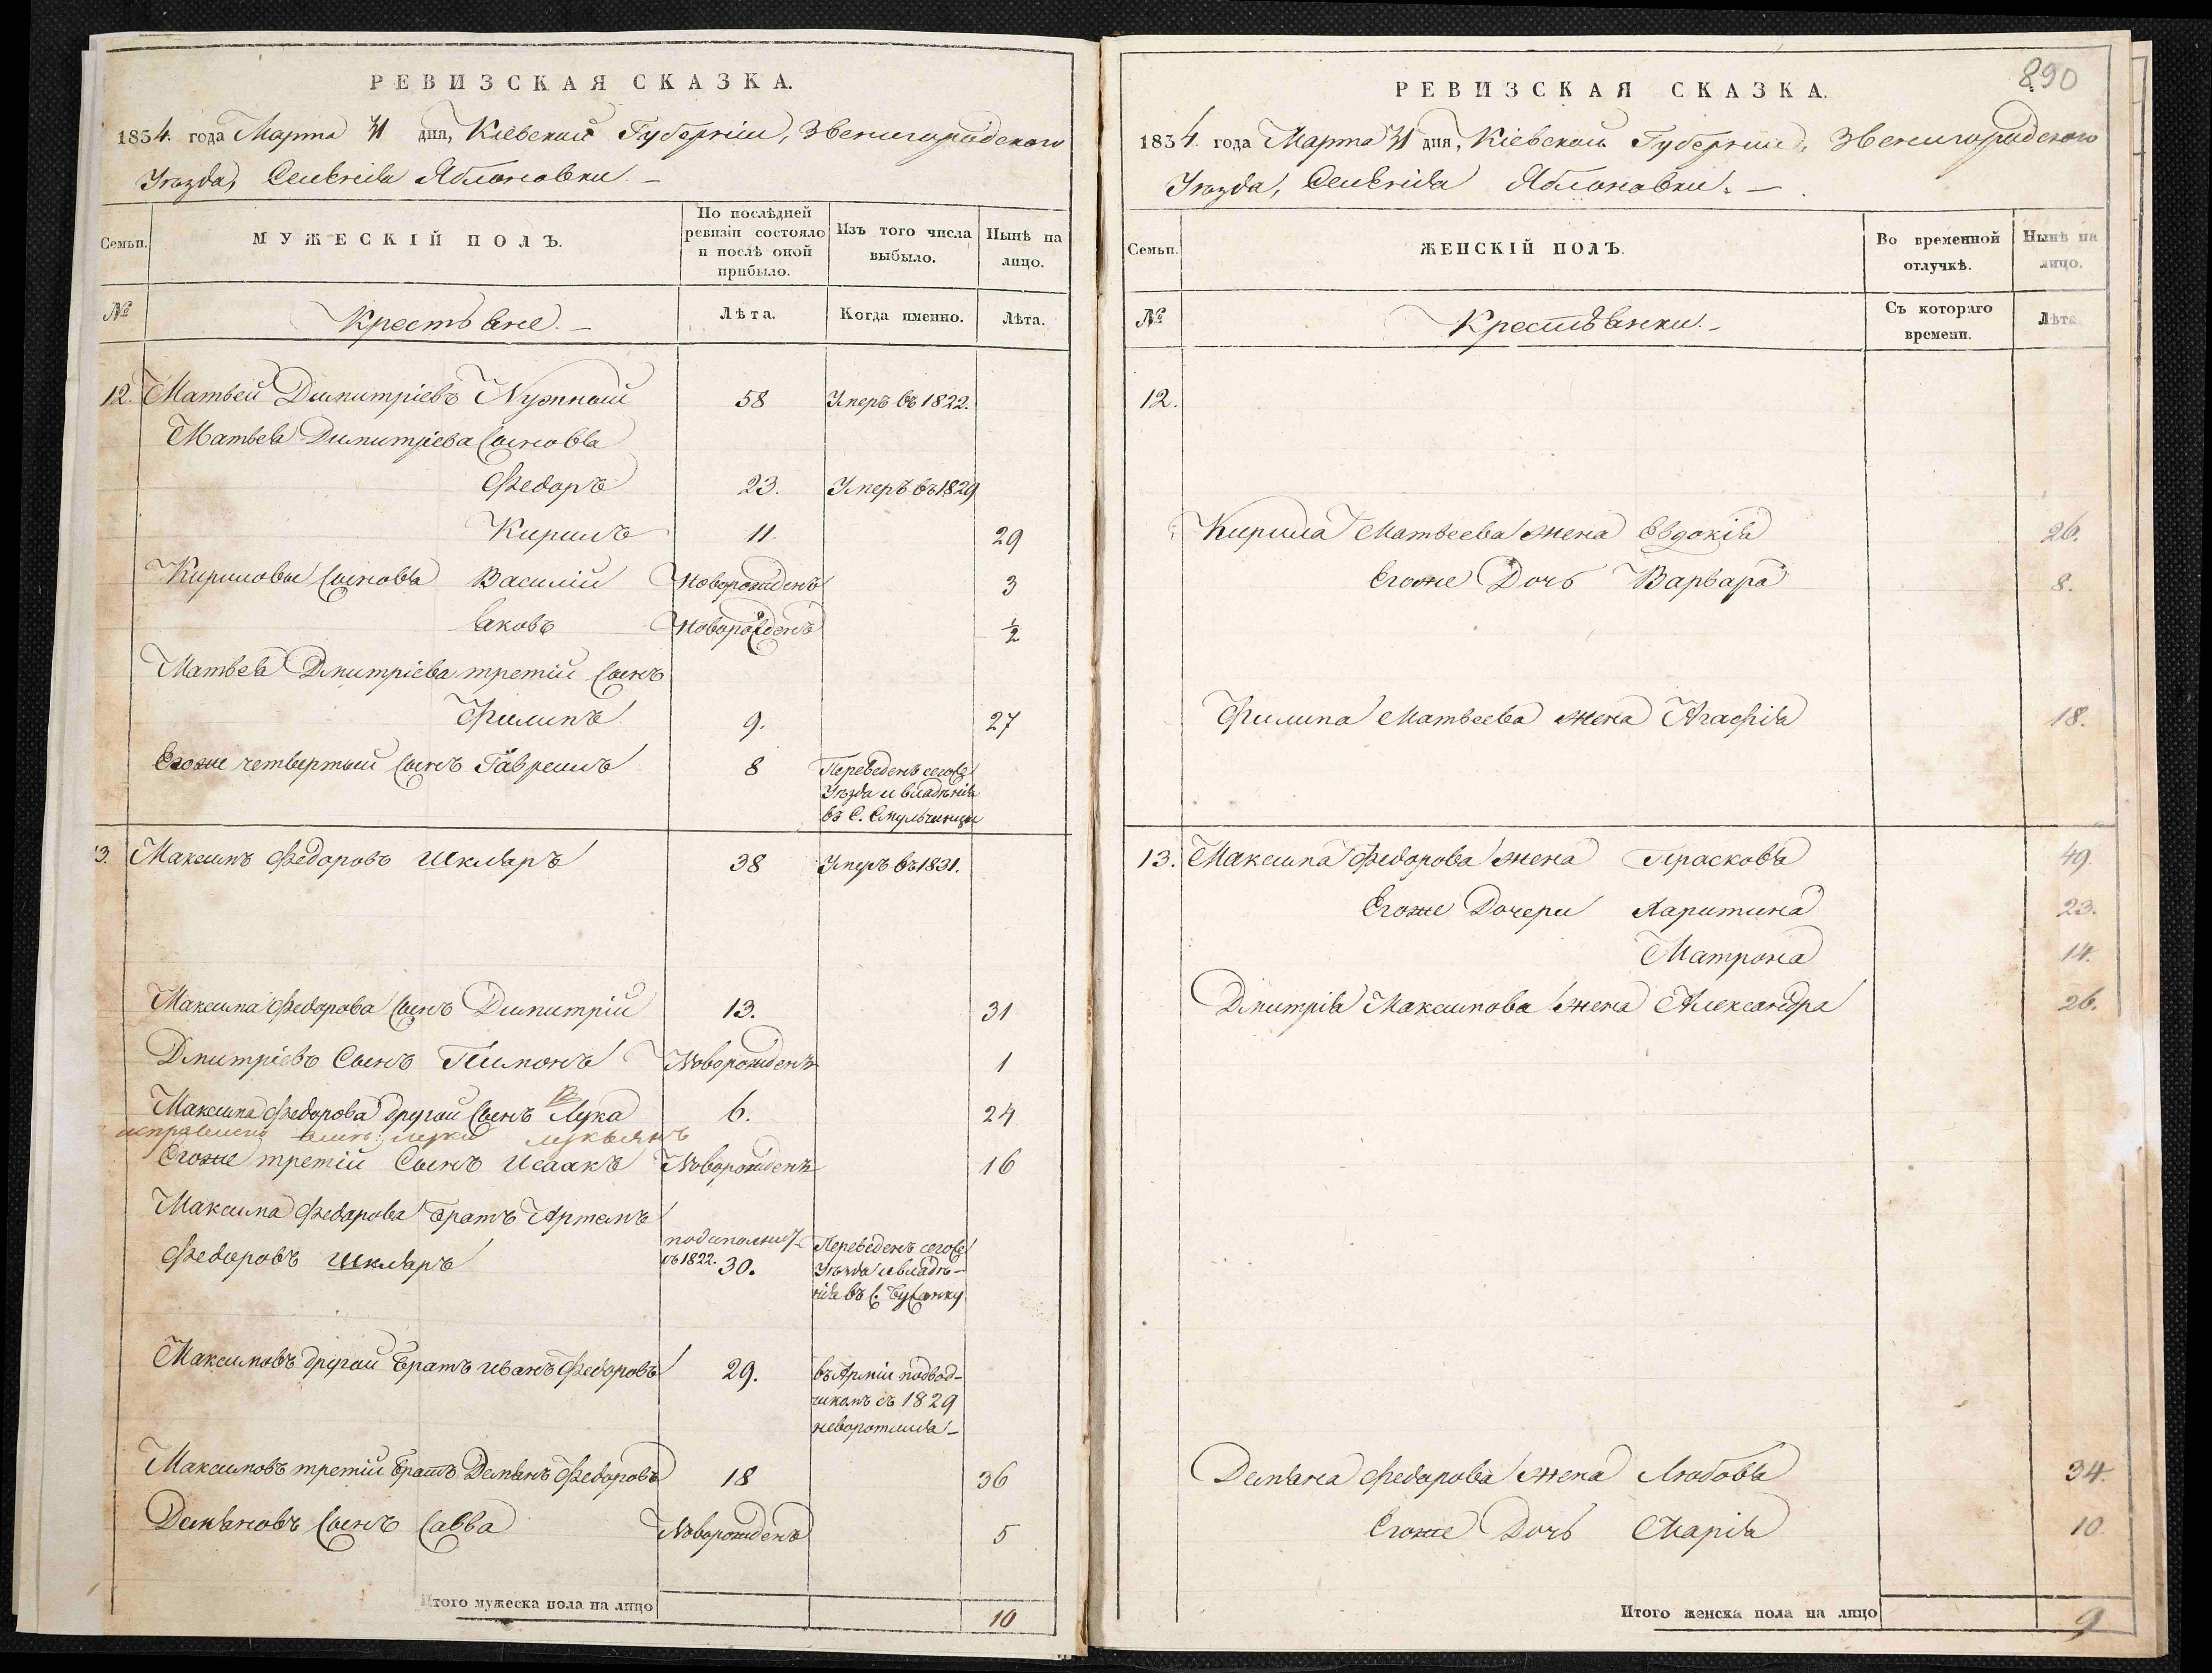 РЕВИЗСКАЯ СКАЗКА.
1834. года Марта дня, Кіевской Губерніи, Звенигородского
Уѣзда, Селенія Яблоновки. —
Семьи.
МУЖЕСКІЙ ПОЛЪ.
По послѣдней ревизіи состояло и послѣ оной прибыло.
Изъ того числа выбыло.
Нынѣ на лицо.
№
Крестьяне. —
Лѣта.
Когда именно.
Лѣта.
12. Матвей Димитріевъ 58 Умеръ въ 1822.
Матвея Димитріева Сыновья
Федоръ 23. Умеръ въ 1829
Кирилъ 11. 29
Кириловы Сыновья Василій Новорожденъ 3
Іаковъ Новорожденъ ½
Матвея Дмитріева третій Сынъ
Филипъ 9. 27
Егоже четвертый Сынъ Гавреилъ 8 Переведенъ сегоже
Уѣзда и владѣнія
въ С. Смульчинцы
13. Максимъ Федоровъ Шкляръ 38 Умеръ въ 1831.
Максима Федорова Сынъ Димитрій 13. 31
Дмитріевъ Сынъ Пимонъ Новорожденъ 1
Максима Федорова другой Сынъ Лука 6. 24
исправлено Лукьянъ
Егоже третій Сынъ Исаакъ Новорожденъ 16
Максима Федорова Братъ Артемъ
Федоровъ Шкляръ
съ 1822. 30.
Переведенъ сегоже
Уѣзда и владѣ-
нія въ С. Бусанку
Максимовъ другой Братъ Иванъ Федоровъ 29. въ Арміи подвод-
чикомъ съ 1829
неворотился —
Максимовъ третій Братъ Демьянъ Федоровъ 18 36
Демьяновъ Сынъ Савва Новорожденъ 5
Итого мужеска пола на лицо 10
890
РЕВИЗСКАЯ СКАЗКА.
1834. года Марта дня, Кіевской Губерніи, Звенигородского
Уѣзда, Селенія Яблоновки. —
Семьи.
ЖЕНСКІЙ ПОЛЪ.
Во временной отлучкѣ.
Нынѣ на лицо.
№
Крестьянки. —
Съ котораго времени.
Лѣта
12.
Кирила Матвеева жена Евдокія 26.
Егоже Дочь Варвара 8.
Филипа Матвеева жена Агафія 18.
13. Максима Федорова жена Прасковья 49.
Егоже Дочери Харитина 23.
Матрона 14.
Дмитрія Максимова жена Александра 26.
Демьяна Федорова жена Любовья 34.
Егоже Дочь Марія 10.
Итого женска пола на лицо 9